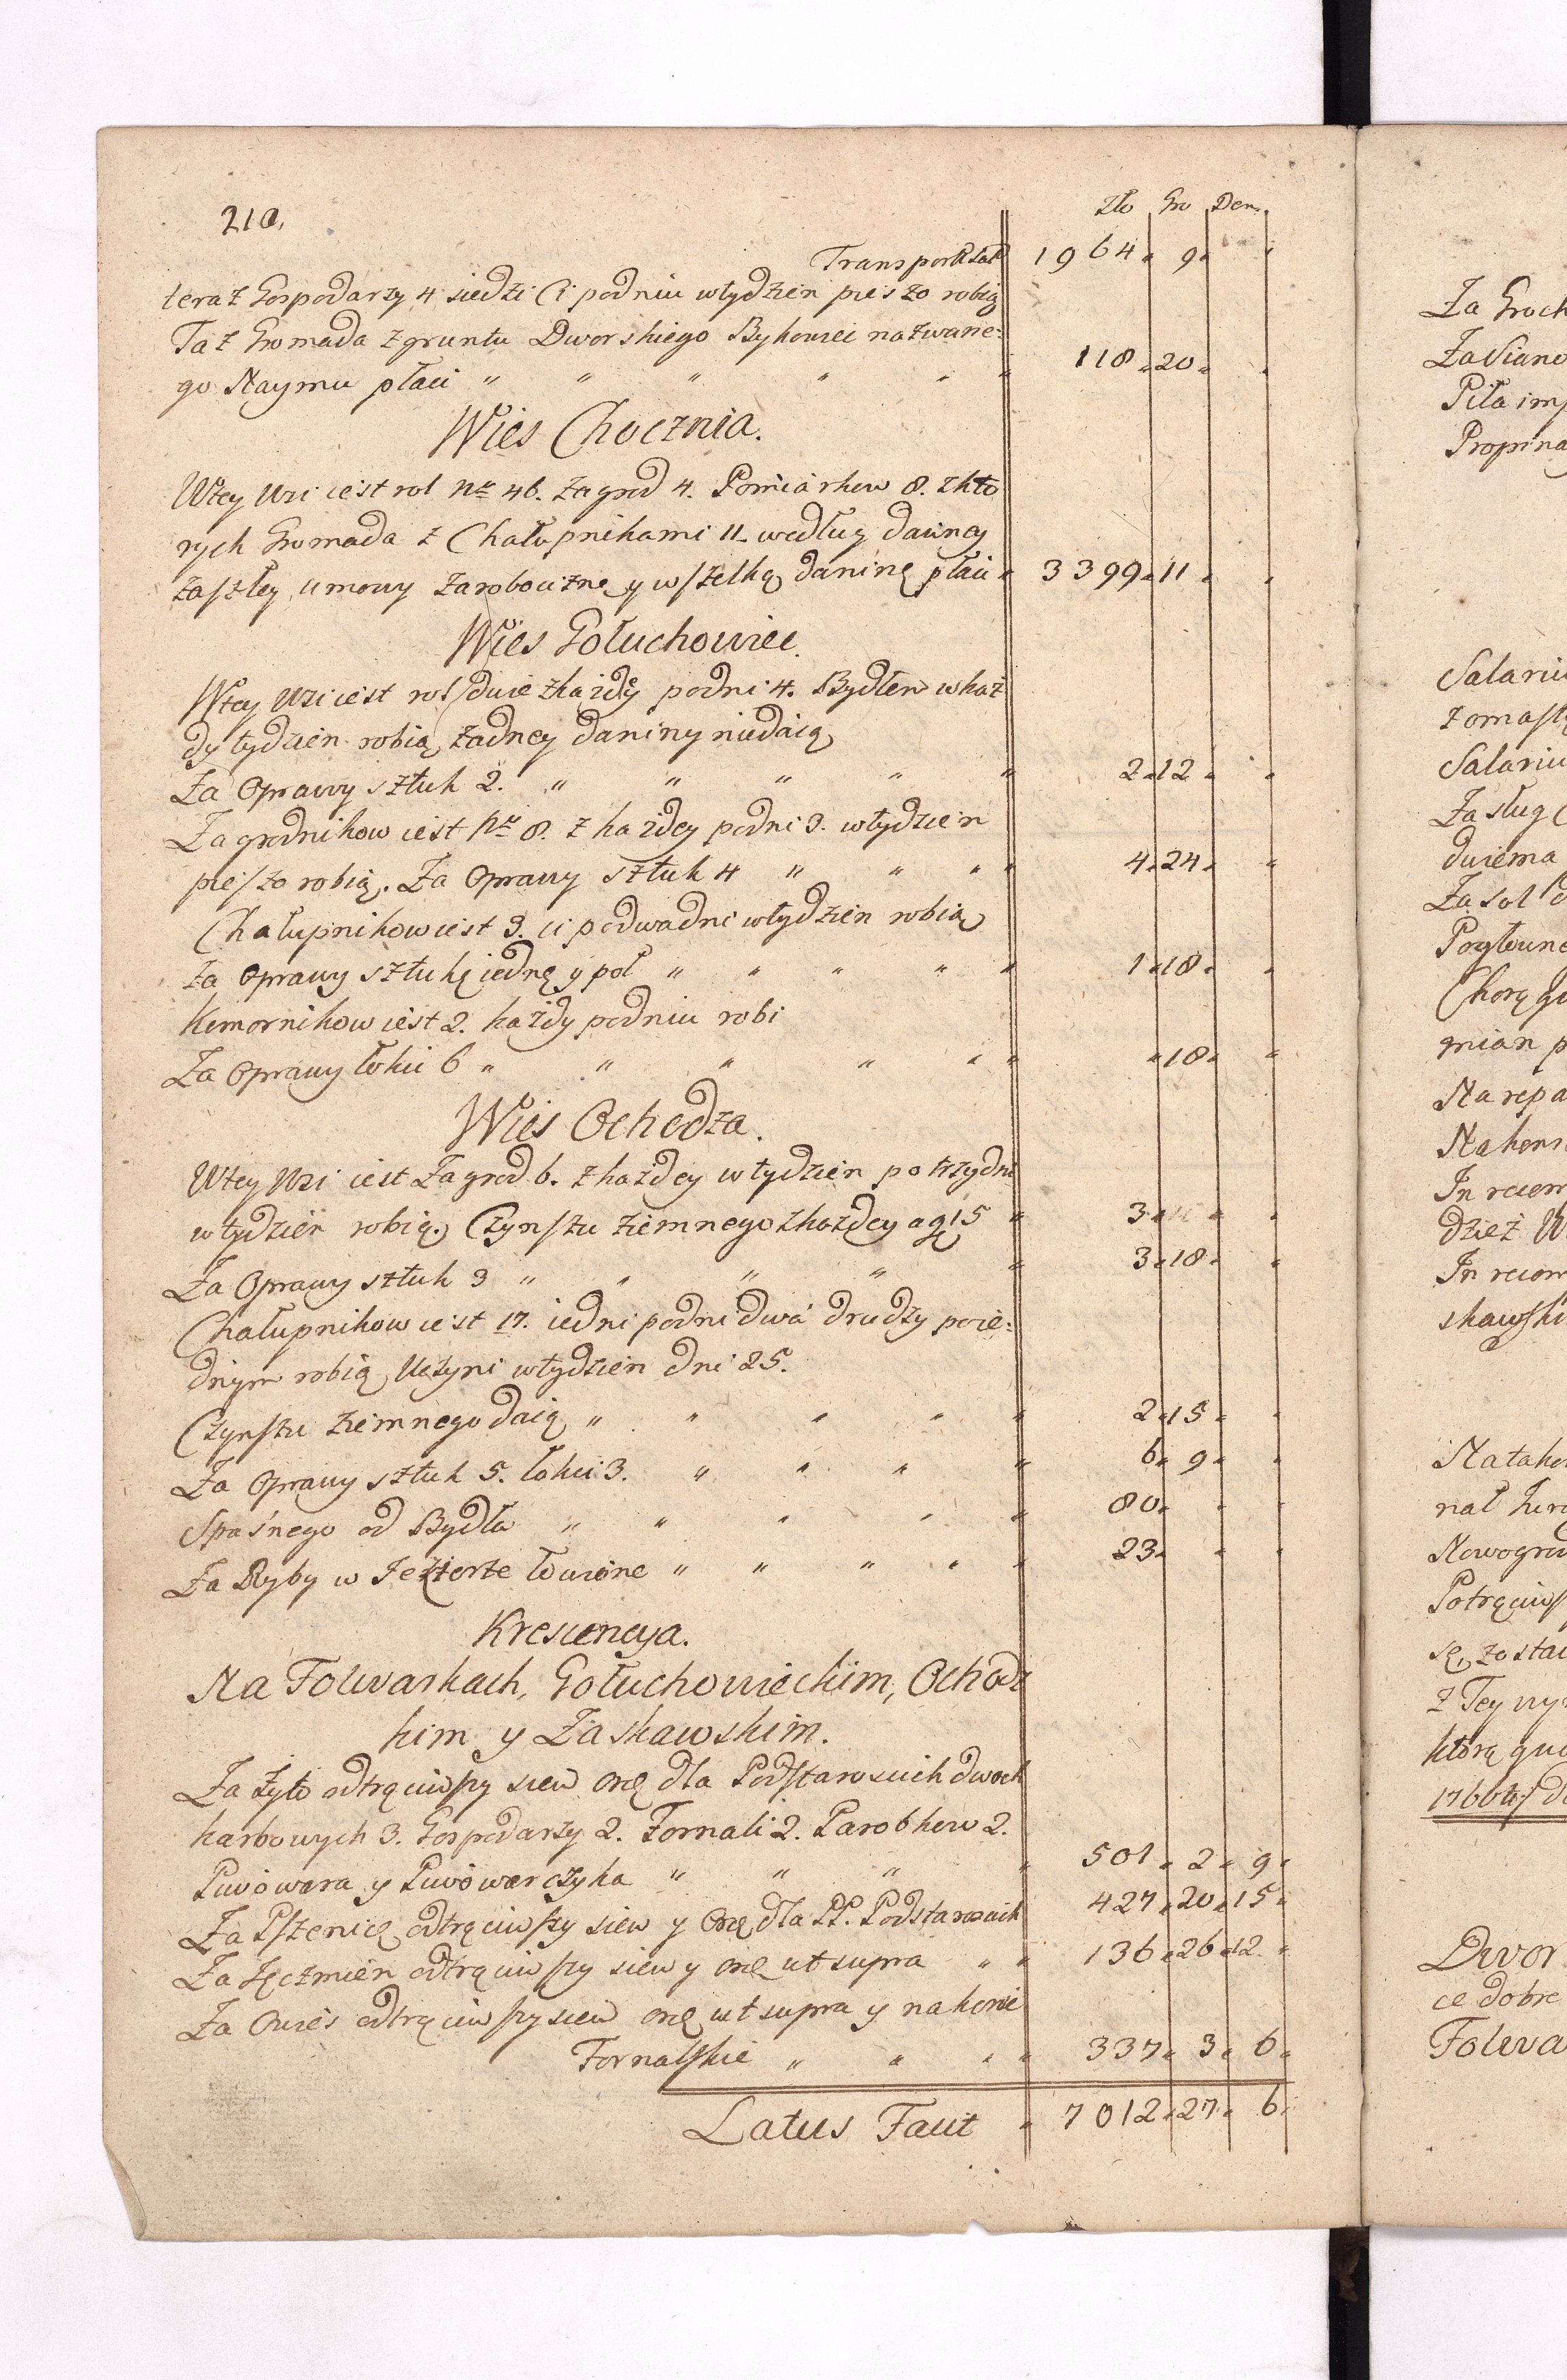 210.
Zło Gro Den.
Transport Lat 1964 " 9 " "
teraz Gospodarzy 4 siedzi Ci podniu wtydzien pieszo robią
Taż Gromada zgruntu Dworskiego Bykowiec nazwane:
go Naymu płaci " " " " " " 118 " 20 " "
Wies Chocznia.
Wtey Wsi iest rol Nr 46. Zagrod 4. Pomiarkow 8. zkto
rych Gromada z Chałupnikami 11. według dawney
zaszłey umowy zarobociznę y wszelką daninę płaci " 3399 " 11 " "
Wies Gołuchowiec.
Wtey Wsi iest rol dwie zkażdy podni 4. Bydłem wkaż
dy tydzien robią, żadney daniny niedaią
Za Oprawy sztuk 2. " " " " " 2 " 12 " "
Zagrodnikow iest Nr 8. z każdey podni 3. wtydzien
pieszo robią. Za Oprawy sztuk 4 " " " " 4 " 24 " "
Chałupnikow iest 3. ci podwadni wtydzien robią
Za Oprawy sztukę iednę y poł " " " " " 1 " 18 " "
Komornikow iest 2. każdy podniu robi
Za Oprawy łokci 6 " " " " " " " 18 " "
Wies Ochodza.
Wtey Wsi iest Zagrod 6. z każdey wtydzien po trzy dni
wtydzien robią. Czynszu ziemnego zkażdey a g 15 " 3 " " "
Za Oprawy sztuk 3 " " " " " 3 " 18 " "
Chałupnikow iest 17. iedni podni dwa drudzy poie:
dnym robią, Uczyni wtydzien dni 25.
Czynszu ziemnego daią " " " " " 2 " 15 " "
Za Oprawy sztuk 5. łokci 3. " " " " 6 " 9 " "
Spaśnego od Bydła " " " " " 80 " " "
Za Ryby w Jeziorze łowione " " " " " 23 " " "
Krescencya.
Na Folwarkach, Gołuchowieckim, Ochodz
kim y Zaskawskim.
Za żyto odtrąciwszy siew Orę dla Podstarościch dwoch
karbowych 3. Gospodarzy 2. Fornali 2. Parobkow 2.
Piwowara y Piwowarczyka " " " " 501 " 2 " 9 "
Za Pszenicę odtrąciwszy siew y Orę dla PP. Podstarościch 427 " 20 " 15 "
Za Jęczmien odtrąciwszy siew y orę ut supra " " 136 " 26 " 12 "
Za Owies odtrąciwszy siew orę ut supra y na konie
Fornalskie " " " " 337 " 3 " 6 "
Latus Facit " 7012 " 27 " 6 "
Za Groch
Za Siano
Piła
Propina
Salariu
Salariu
Za sług
dwiema
Za sol
Na repa
In recom
dzież
In recom
skawski
Nowogro
z Tey
którą
Dwor
ce dobre
Folwa